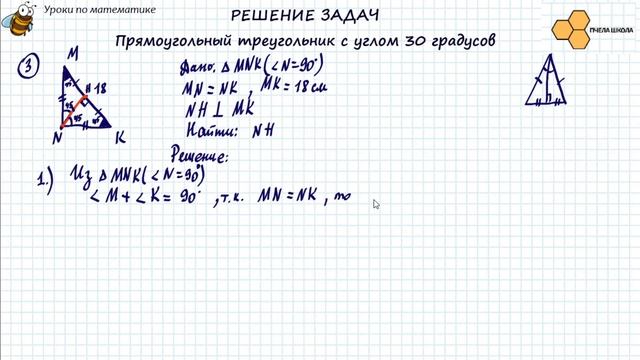 Уроки по математике
РЕШЕНИЕ ЗАДАЧ
Прямоугольный треугольник с углом 30 градусов
ПЧЕЛА ШКОЛА
3
M
H 18
45
45
45
45
N
K
Дано: △ MNK (∠N=90°)
MN = NK, MK = 18 см
NH ⊥ MK
Найти: NH
Решение:
1.) Из △ MNK (∠N=90°)
∠M + ∠K = 90°, т.к. MN = NK, то